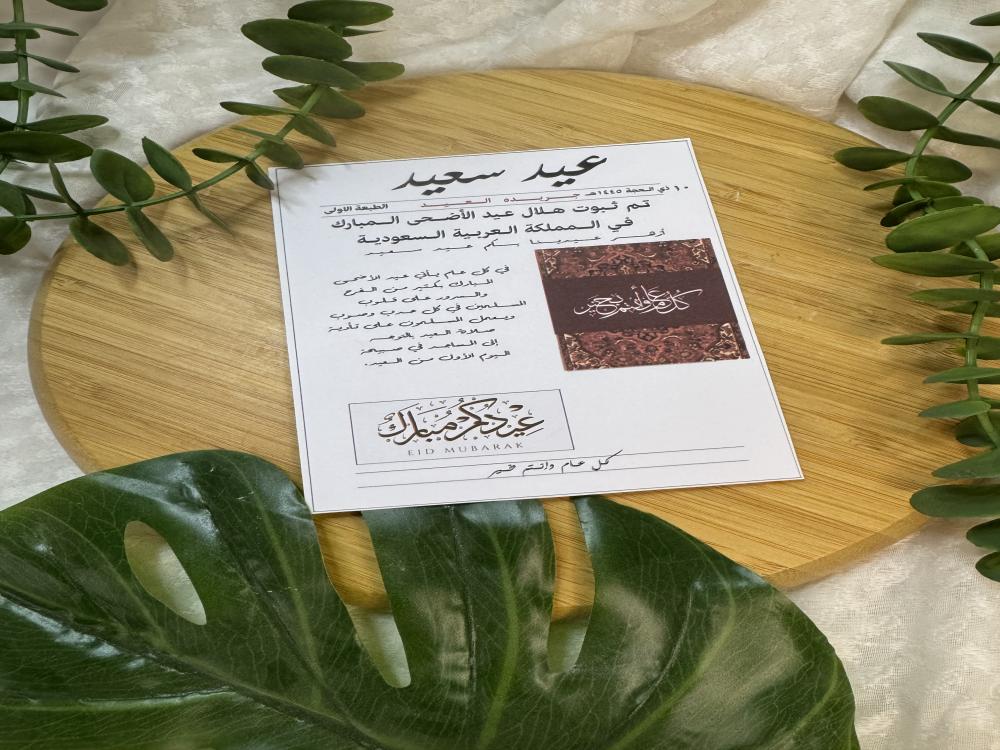 عيد سعيد
١٠ ذي الحجة ١٤٤٥هـ جريده العيد الطبعة الاولى
تم ثبوت هلال عيد الأضحى المبارك
في المملكة العربية السعودية
أزهر عيدينا بكم عيد سعيد
في كل عام يأتي عيد الأضحى
المبارك بكثير من الفرح
والسرور على قلوب
المسلمين في كل حدب وصوب
ويعمل المسلمون على تأدية
صلاة العيد بالتوجه
إلى المساجد في صبيحة
اليوم الأول من العيد.
كل عام وأنتم بخير
عيدكم مبارك
EID MUBARAK
كل عام وانتم بخير